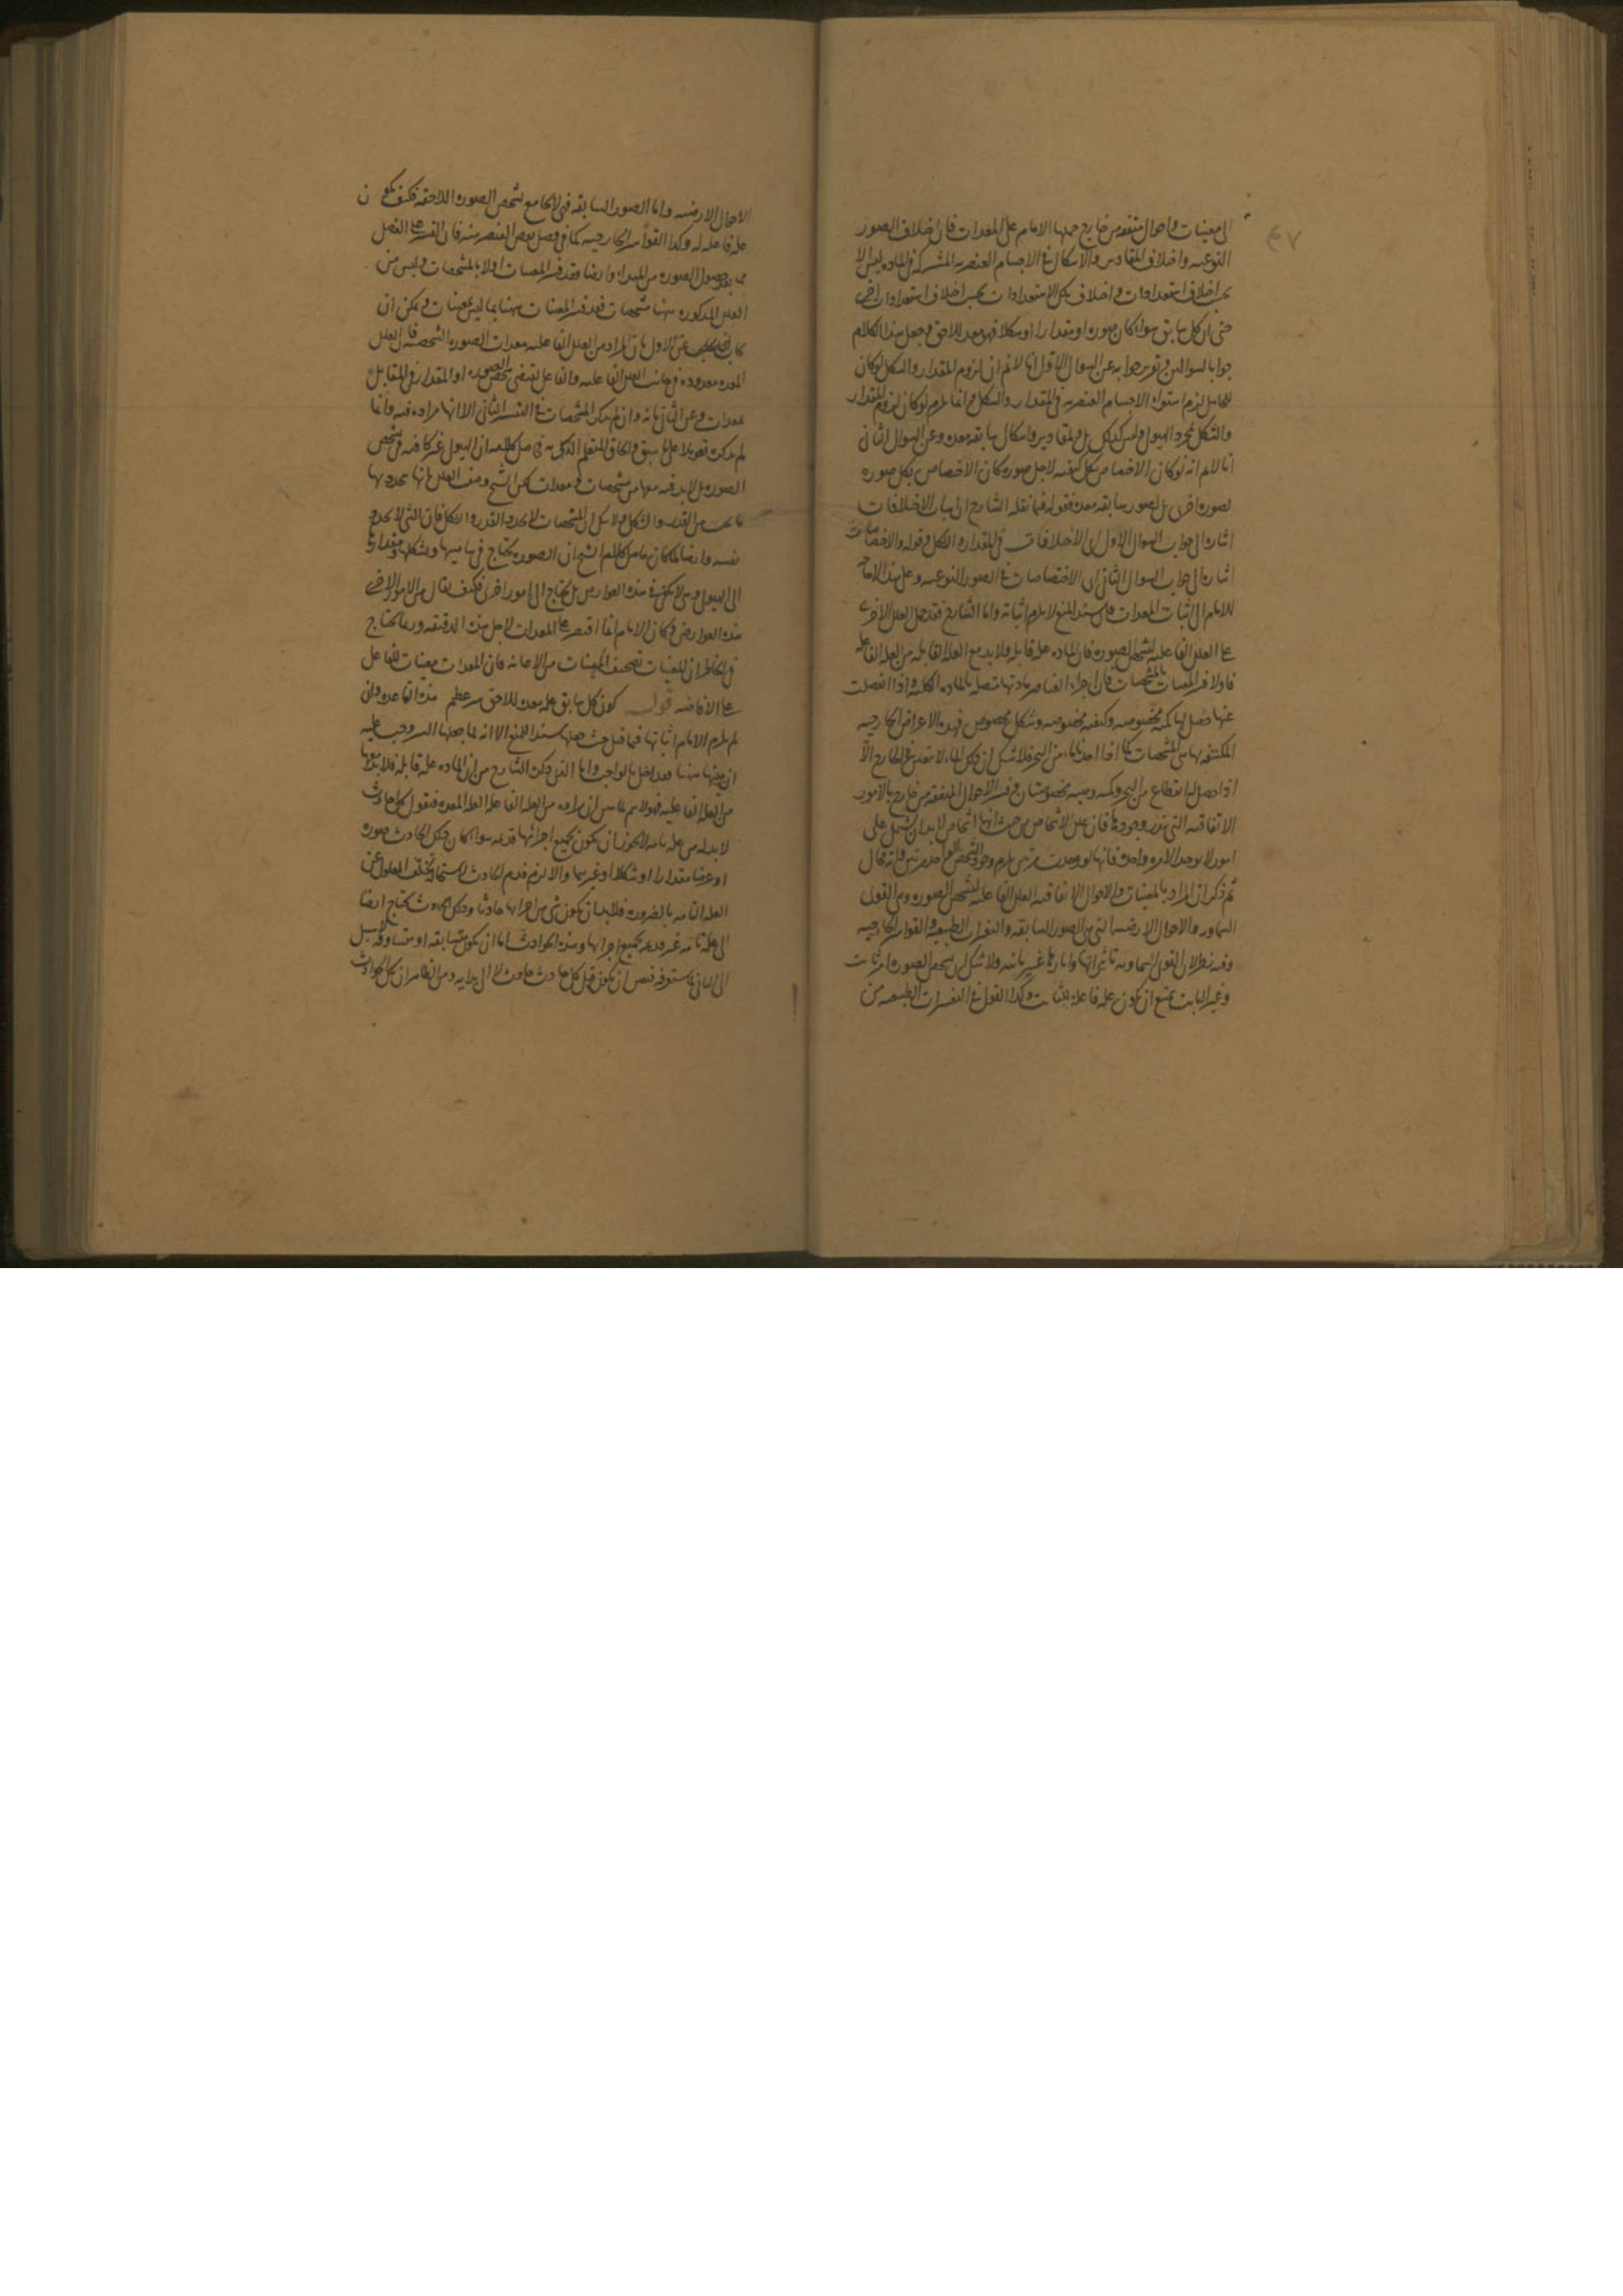 الى معينات واحوال متفقة من خارج حملها الامام على المعدات فان اختلاف الصور
النوعيه واختلاف المقادير والاشكال فى الاجسام العنصريه المشتركة فى الماده ليس الا
بحسب اختلاف استعدادات واختلاف تلك الاستعدادات بحسب اختلاف استعدادات اخرى
حتى ان كل سابق سواء كان صوره او مقدارا او شكلا فهو معد للاحق وجعل هذا الكلام
جوابا للسوالين وتوجيه جوابه عن السوال الاول انا لانم ان لزوم المقدار والشكل لو كان
للحامل لزم استواء الاجسام العنصريه فى المقدار والشكل وانما يلزم لو كان لزوم المقدار
والشكل لمجرد الهيولى وليس كذلك بل ولمقادير واشكال سابقه معده وعن السوال الثانى
انا لانم انه لو كان الاختصاص بكل كيفيه لاجل صوره كان الاختصاص بكل صوره
لصوره اخرى بل لصور سابقه معده فقوله فيما نقله الشارح اسباب الاختلافات
اشاره الى جواب السوال الاول اى الاختلافات فى المقدار والشكل وقوله والاختصاصات
اشاره الى جواب السوال الثانى اى الاختصاصات فى الصور النوعيه وعلى هذا لا حاجه
للامام الى اثبات المعدات فان سند المنع لا يلزم اثباته واما الشارح فقد حمل العلل الاخرى
على العلل الفاعليه لتشخص الصوره فان الماده عله قابله ولا بد مع العله القابله من العله الفاعله
فاولا فسر المعينات بالمشخصات فان اجزاء العناصر مادتها متصله بالماده الكليه واذا انفصلت
عنها حصل لها كميه مخصوصه وكيفيه مخصوصه وشكل مخصوص فهذه الاعراض الخارجيه
المكتنفه بها هى المشخصات كما اذا اخذنا ماء من البحر فلا شك ان ذلك الماء لا يتعين فى الخارج الا
اذا حصل له انقطاع من البحر وكميه وهيئه مخصوصتان وفسر الاحوال المتفقه من خارج بالامور
الاتفاقيه التى يندر وجودها فان علل الاشخاص من حيث انها اشخاص لا بد ان يشتمل على
امور لا يوجد الا مره واحده فانها لو وجدت مرتين لزم وجود الشخص الواحد مرتين وانه محال
ثم ذكر ان المراد بالمعينات والاحوال الاتفاقيه العلل الفاعليه لتشخص الصوره وهى القوى
السماويه والاحوال الارضيه التى هى الصور السابقه والتغيرات الطبيعيه والقواسر الخارجيه
وفيه نظر لان القوى السماويه تاثيراتها واثارها غير ثابته ولا شك ان تشخص الصوره امر ثابت
وغير الثابت يمتنع ان يكون عله فاعله للثابت وكذا القول فى التغيرات الطبيعيه من
الاحوال الارضيه واما الصور السابقه فهى لا تجامع تشخص الصوره اللاحقه فكيف يكون
عله فاعله له وكذا القواسر الخارجيه كما فى فصل بعض العنصر منه فان القسر على الفصل
مما يعد حصول الصوره من المبدا وايضا وقد فسر المعينات اولا بالمشخصات وليس من
العلل المذكوره ههنا مشخصات فقد فسر المعينات ههنا بما ليس بمعينات ويمكن ان
يجاب عن الاول بان المراد من العلل الفاعليه معدات الصوره الشخصيه فان العلل
المعده معدوده فى جانب العلل الفاعليه والفاعل يقتضى تشخص الصوره او المقدار فى المقابل
بمعدات وعن الثانى بانه وان لم يذكر المشخصات فى التفسير الثانى الا انها مراده فيه وانما
لم يذكره تعويلا على ما سبق والحاق المتعلم الذكى به فى حاصل كلامه ان الهيولى غير كافيه فى تشخص
الصوره بل لا بد فيه معها من مشخصات ومعدات لكن الشيخ وصف العلل بانها تحدد بها
ما يجب من القدر والشكل ولا شك ان المشخصات لا تحدد القدر والشكل فان الشى لا يحدد
نفسه وايضا لما كان حاصل كلام الشيخ ان الصوره تحتاج فى تناهيها وتشكلها ومقدارها
الى الهيولى وهى لا تكفى فى هذه العوارض بل يحتاج الى امور اخرى فكيف يقال من الامور الاخرى
هذه العوارض وكان الامام انما اقتصر على المعدات لاجل هذه الدقيقه وربما يختلج
فى الخاطر ان المعينات تصحيف المعينات من الاعانه فان المعدات معينات للفاعل
على الافاضه قوله كون كل سابق عله معده للاحق سر عظيم هذه القاعده وان
لم يلزم الامام اثباتها فيما قبل حيث جعلها سندا للمنع الا انه لما جعلها السر وجب عليه
ان يبينها ههنا فقد اخل بالواجب واما الذى ذكره الشارح من ان الماده عله قابله فلا بد معها
من العله الفاعليه فهو لا يتم لما تبين ان مراده من العله الفاعله العله المعده فنقول كل حادث
لا بد له من عله تامه لا يجوز ان يكون بجميع اجزائها قديمه سواء كان ذلك الحادث صوره
او عرضا مقدارا او شكلا او غيرهما والا لزم قدم الحادث لاستحاله تخلف المعلول عن
العله التامه بالضروره فلا بد ان يكون شى من اجزائها حادثا وذلك الحادث يحتاج ايضا
الى عله تامه غير قديمه بجميع اجزائها وهذه الحوادث اما ان يكون متسابقه او متساوقه لا سبيل
الى الثانى لما ستعرفه فتعين ان يكون قبل كل حادث حادث لا الى بدايه ومن الظاهر ان تلك الحوادث